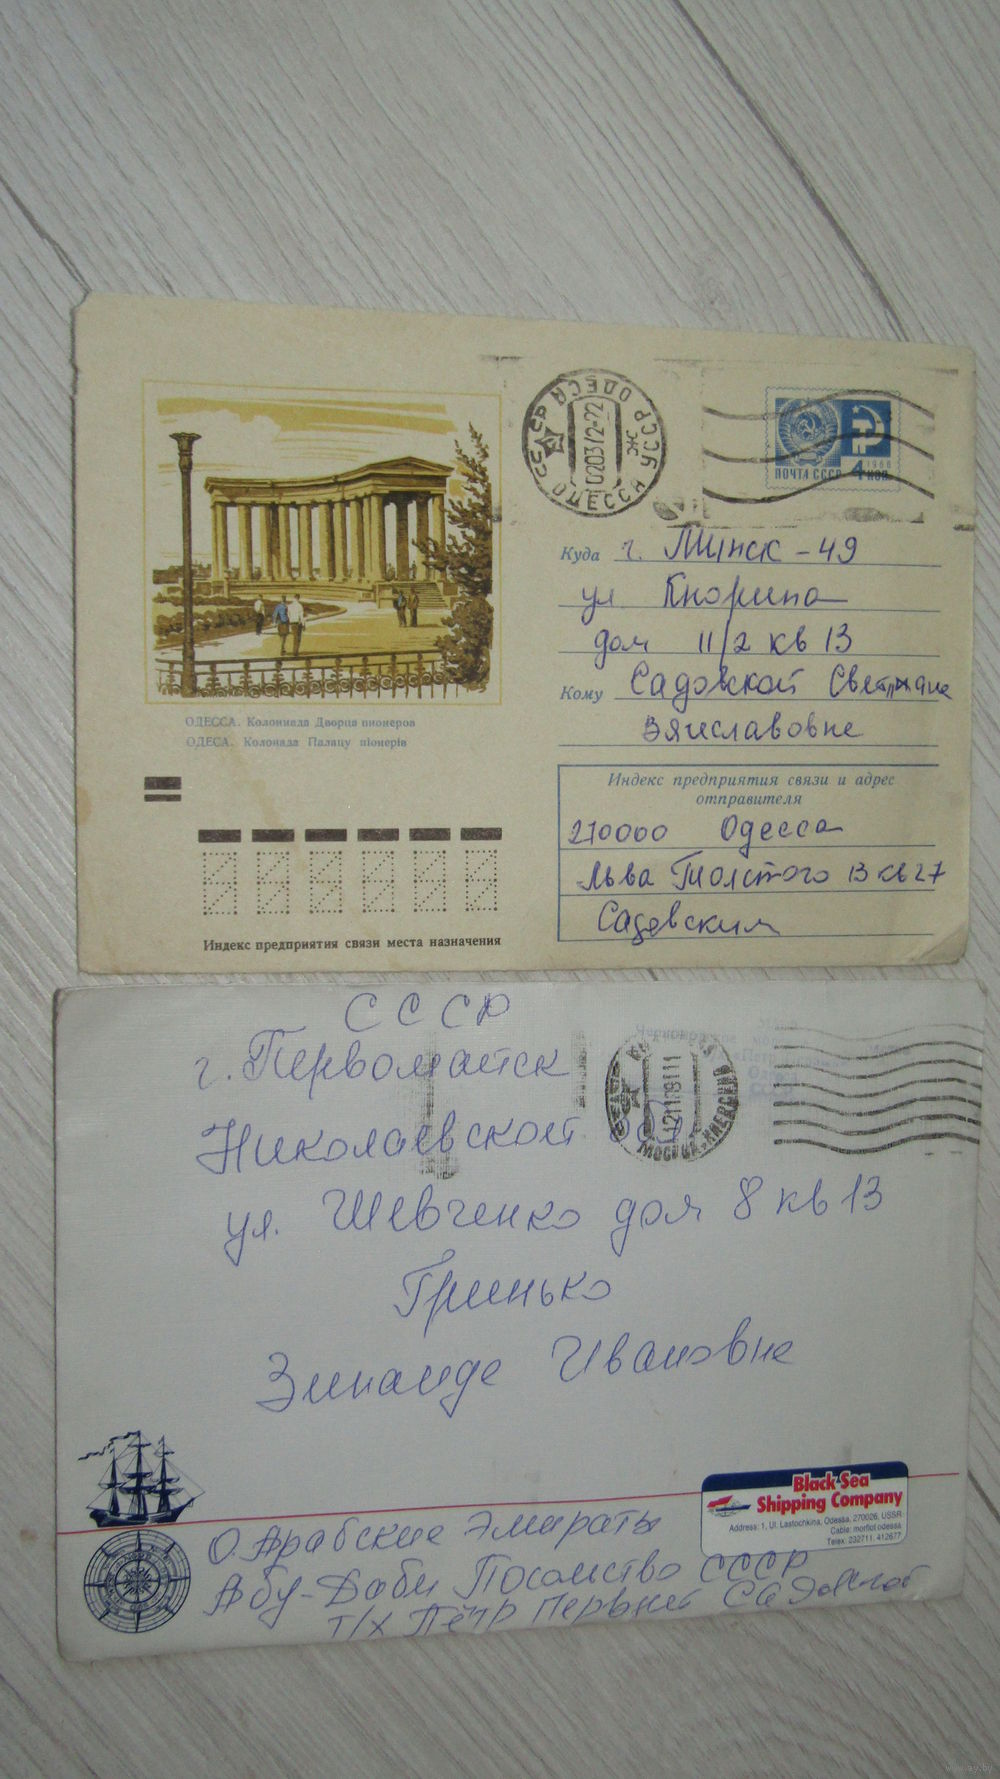 СССР ОДЕССА
УССР ОДЕСА
020372-22
Ж
1966
ПОЧТА СССР 4 КОП
Куда г. Минск-49
ул Кнорина
дом 11/2 кв 13
Кому Садовской Светлане
Вячеславовне
ОДЕССА. Колоннада Дворца пионеров
ОДЕСА. Колонада Палацу піонерів
Индекс предприятия связи и адрес
отправителя
270000 Одесса
Льва Толстого 13 кв 27
Садовским
Индекс предприятия связи места назначения
СССР
г. Первомайск
Николаевской обл.
МОСКВА КИЕВСКИЙ
ул. Шевченко дом 8 кв 13
Гринько
Зинаиде Ивановне
Black Sea
Shipping Company
Address: 1, Ul. Lastochkina, Odessa, 270026, USSR
Cable: morflot odessa
Telex: 232711, 412677
О. Арабские Эмираты
Абу-Даби Посольство СССР
т/х Пётр Первый
www.ay.by